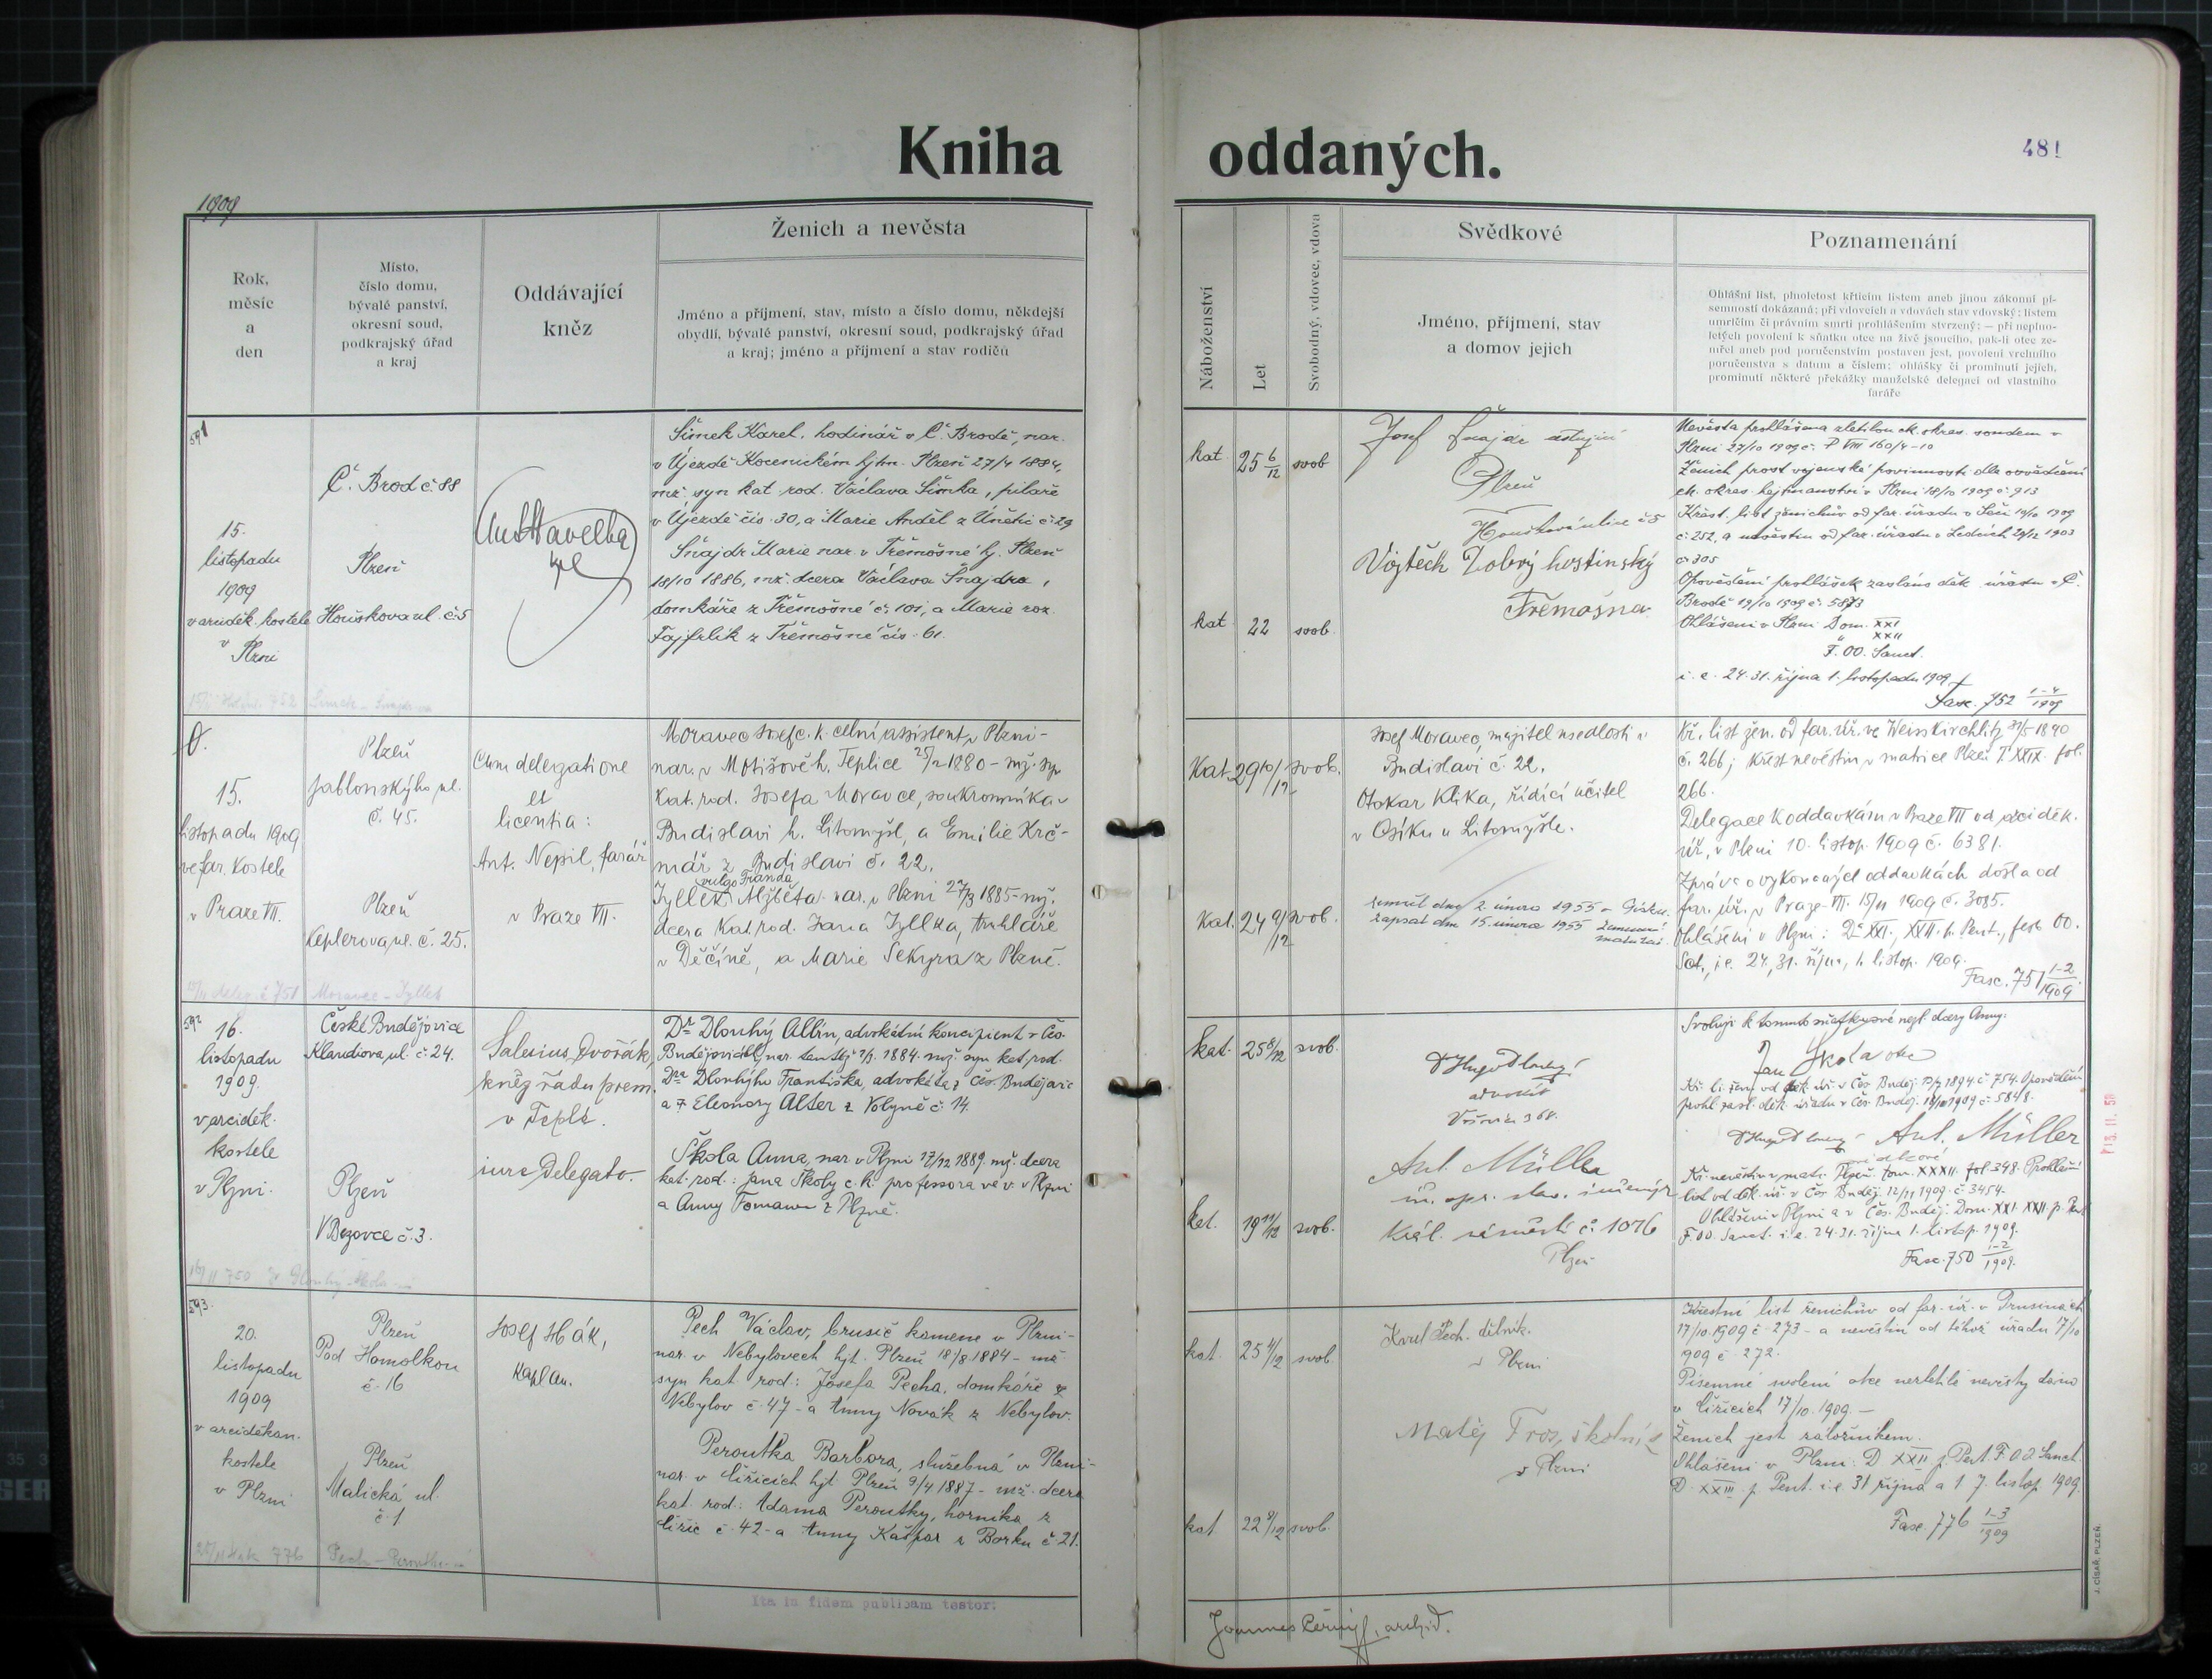 Kniha oddaných.
481
1909
Rok,
měsíc
a
den
Místo,
číslo domu,
bývalé panství,
okresní soud,
podkrajský úřad
a kraj
Oddávající
kněz
Ženich a nevěsta
Jméno a příjmení, stav, místo a číslo domu, někdejší
obydlí, bývalé panství, okresní soud, podkrajský úřad
a kraj; jméno a příjmení a stav rodičů
Náboženství
Let
Svobodný, vdovec, vdova
Svědkové
Jméno, příjmení, stav
a domov jejich
Poznamenání
Ohlášní list, plnoletost křticím listem aneb jinou zákonní pí-
semností dokázaná; při vdovcích a vdovách stav vdovský; listem
umrlčím či právním smrti prohlášením stvrzený; — při neplno-
letých povolení k sňatku otce na živě jsoucího, pak-li otec ze-
mřel aneb pod poručenstvím postaven jest, povolení vrchního
poručenstva s datum a číslem; ohlášky či prominutí jejich,
prominutí některé překážky manželské delegací od vlastního
faráře
591
15.
listopadu
1909
v arciděk. kostele
v Plzni
Č. Brod č. 88
Plzeň
Houškova ul. č. 5
Šimek Karel, hodinář v Č. Brodě, nar.
v Újezdě Kocenickém hjtm. Plzeň 27/4 1884,
mž. syn kat. rod. Václava Šimka, pilaře
v Újezdě čís. 30, a Marie Anděl z Únětic č. 29
Šnajdr Marie nar. v Třemošné hj. Plzeň
18/10 1886, mž. dcera Václava Šnajdra,
domkáře z Třemošné č. 101, a Marie roz.
Fajfrlík z Třemošné čís. 61.
kat. 25 6/12 svob
kat. 22 svob.
Josef Šnajdr
Plzeň
Houškova ulice č 5
Vojtěch Dobrý hostinský
Třemošna
Nevěsta prohlášena zletilou ck. okres. soudem v
Plzni 27/10 1909 č. P VIII 160/4-10
Ženich prost vojenské povinnosti dle osvědčení
ck. okres. hejtmanství v Plzni 18/10 1909 č. 913
Křest. list ženichův od far. úřadu v 19/10 1909
č. 252, a nevěstin od far. úřadu v Ledcích 29/12 1903
č. 305
Opovědění prohlášek zasláno děk. úřadu v Č.
Brodě 19/10 1909 č. 5873
Ohlášeni v Plzni Dom. XXI
" XXII
F. OO. Sanct.
i. e. 24. 31. října 1. listopadu 1909
Fasc. 752 1-4/1909
15.
listopadu 1909
ve far. kostele
v Praze VII.
Plzeň
Jablonskýho ul.
č. 45.
Plzeň
Keplerova ul. č. 25.
Cum delegatione
et
licentia:
Ant. Nepil, farář
v Praze VII.
Moravec Josef c. k. celní assistent v Plzni -
nar. v Motišově h. Teplice 25/2 1880 - mž. syn
kat. rod. Josefa Moravce, soukromníka v
Budislavi h. Litomyšl, a Emilie Krč-
mář z Budislavi č. 22.
vulgo Franda
Jyllek Alžběta nar. v Plzni 27/3 1885 - mž.
dcera kat. rod. Jana Jyllka, truhláře
v Děčíně, a Marie Sekyra z Plzně.
Kat. 29 10/12 svob.
Kat. 24 9/12 svob.
Josef Moravec, majitel usedlosti v
Budislavi č. 22.
Otokar Klika, řídící učitel
v Osíku u Litomyšle.
zemřel dne 2. února 1955
zapsal dne 15. února 1955
Kř. list žen. od far. úř. ve Weisskirchlitz 31/5 1890
č. 266; křest nevěstin v matrice Plzeň T. XXIX. fol.
266.
Delegace k oddavkám v Praze VII od arciděk.
úř. v Plzni 10. listop. 1909 č. 6381.
Zpráva o vykonaných oddavkách došla od
far. úř. v Praze - VII. 15/11 1909 č. 3085.
Ohlášeni v Plzni: XXI., XXII. p. Pent., fest. OO.
Sct., i. e. 24., 31. října, 1. listop. 1909.
Fasc. 751 1-2/1909
592
16.
listopadu
1909.
v arciděk.
kostele
v Plzni.
České Budějovice
Klaudiova ul. č. 24.
Plzeň
V Bezovce č. 3.
Salesius Dvořák,
kněz řádu prem.
v Teplé.
iure delegato.
Dr Dlouhý Albín, advokátní koncipient v Čes.
Budějovicích, nar. tamtéž 1884. mž. syn kat. rod.
Dra Dlouhýho Františka, advokáta z Čes. Budějovic
a Eleonory Alter z Volyně č. 14.
Škola Anna, nar. v Plzni 17/12 1889. mž. dcera
kat. rod.: Jana Školy c. k. professora ve v. v Plzni
a Anny Toman z Plzně.
kat. 25 8/12 svob.
kat. 19 11/12 svob.
Dr Hugo Dlouhý
advokát
Ant. Müller
Král. náměstí č. 1076
Plzeň
Svoluji k tomuto sňatku své nezl. dcery Anny:
Jan Škola otec
Kř. li. žen. od děk. úř. v Čes. Buděj. 1894 č. 754. Opovědění
prohl. zasl. děk. úřadu v Čes. Buděj. 1909 č. 5848.
Dr Hugo Dlouhý Ant. Müller
svědkové
Kř. nevěstin v matr. Plzeň. tom. XXXII. fol. 348. Prohlášní
list od děk. úř. v Čes. Buděj. 12/11 1909. č. 3454.
Ohlášeni v Plzni a v Čes. Buděj. Dom. XXI. XXII. p. Pent
F. OO. Sanct. i. e. 24. 31. října 1. listop. 1909.
Fasc. 750 1-2/1909.
593.
20.
listopadu
1909
v arciděkan.
kostele
v Plzni
Plzeň
Pod Homolkou
č. 16
Plzeň
Malická ul.
č. 1
Josef Hák,
kaplan.
Pech Václav, brusič kamene v Plzni -
nar. v Nebylovech hjt. Plzeň 18/8 1884 - mž.
syn kat. rod.: Josefa Pecha, domkáře z
Nebylov č. 47 - a Anny Novák z Nebylov.
Peroutka Barbora, služebná v Plzni -
nar. v Čížicích hjt. Plzeň 9/4 1887 - mž. dcera
kat. rod.: Adama Peroutky, horníka z
Čížic č. 42 - a Anny Kašpar z Borku č. 21.
kat. 25 4/12 svob.
kat. 22 svob.
Karel Pech - dělník.
v Plzni
Matěj školník
v Plzni
Křestní list ženichův od far. úř. v Prusinách
17/10 1909 č. 273 - a nevěstin od téhož úřadu 17/10
1909 č. 272.
Písemné svolení otce nezletilé nevěsty dáno
v Čížicích 17/10. 1909. -
Ženich jest záložníkem.
Ohlášeni v Plzni: D XXII p. Pent. F. Sanct.
D. XXIII p. Pent. i. e. 31 října a 1. 7. listop. 1909.
Fasc. 776 1-3/1909
Ita in fidem publicam testor:
Joannes Černý, archid.
J. CÍSAŘ, PLZEŇ.